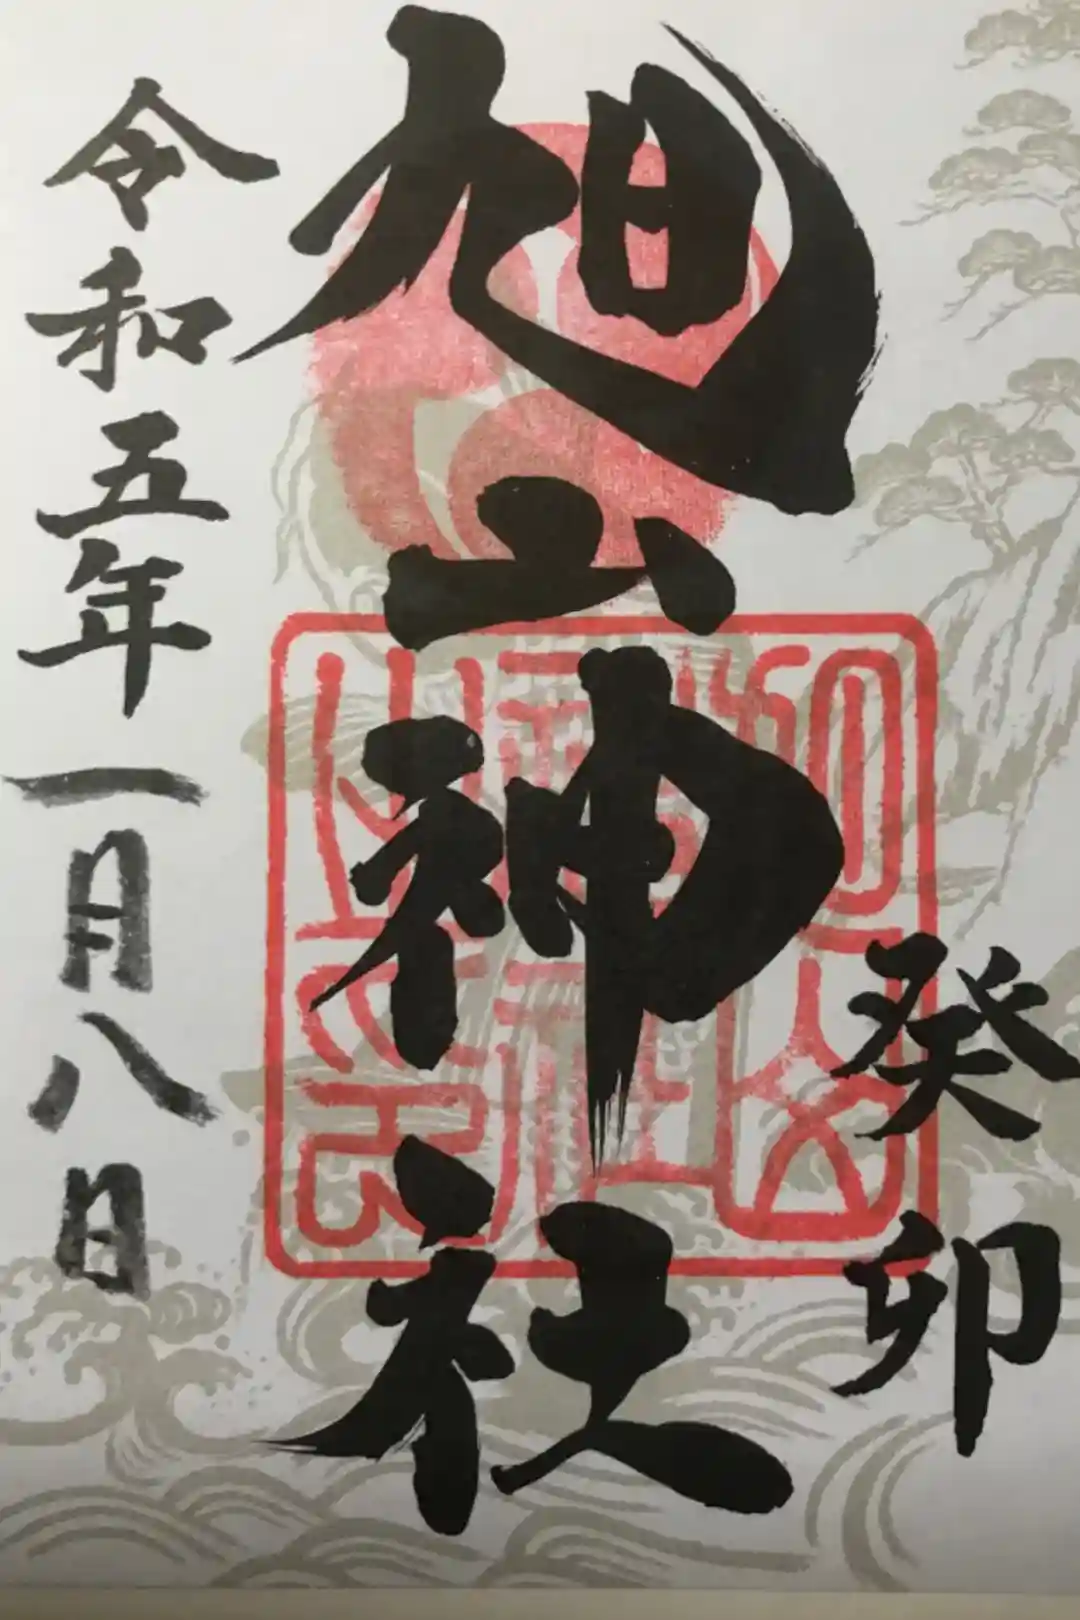 癸卯
旭山神社
令和五年一月八日